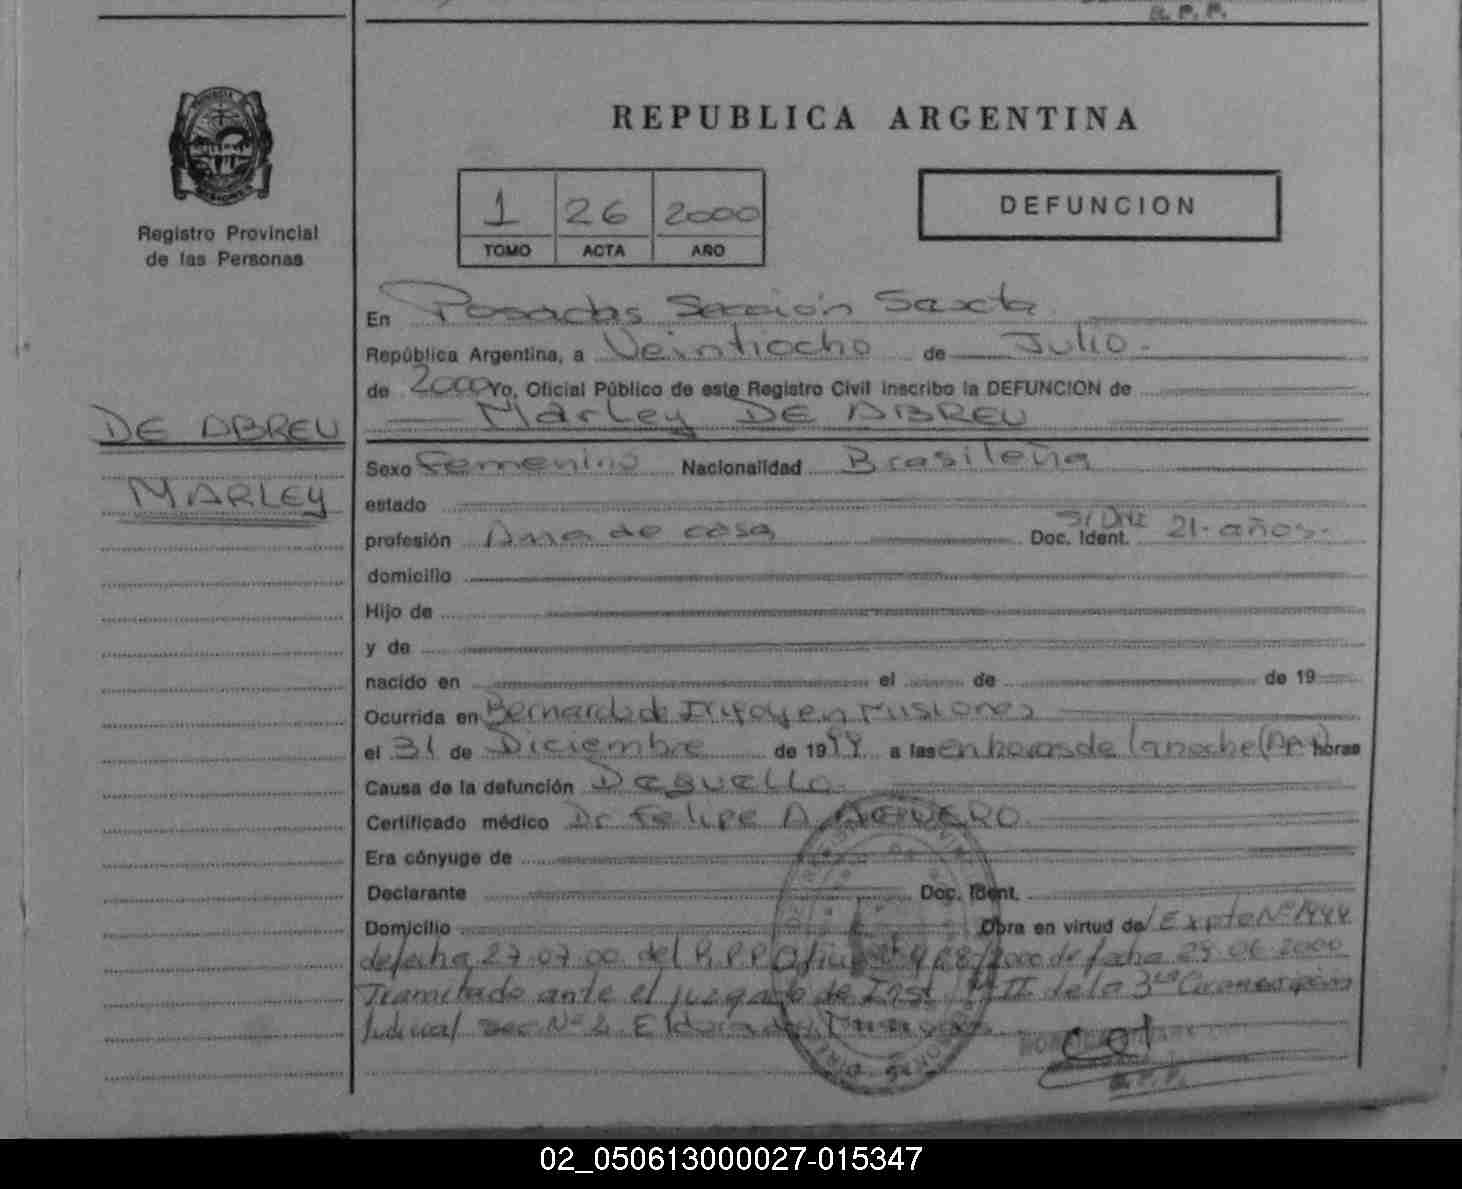 R. P. P.
REPUBLICA ARGENTINA
Registro Provincial
de las Personas
1 26 2000
TOMO ACTA AÑO
DEFUNCION
En Posadas Sección Sexta
República Argentina, a Veintiocho de Julio.
de 2000 Yo, Oficial Público de este Registro Civil inscribo la DEFUNCION de
Marley DE ABREU
DE ABREU
MARLEY
Sexo Femenino Nacionalidad Brasileña
estado
profesión Ama de casa Doc. Ident. S/DNI 21-años.
domicilio
Hijo de
y de
nacido en el de de 19
Ocurrida en Bernardo de Irigoyen Misiones
el 31 de Diciembre de 1999 a las en horas de la noche horas
Causa de la defunción Deguello
Certificado médico Dr Felipe A. AGUERO
Era cónyuge de
Declarante Doc. Ident.
Domicilio Obra en virtud de Expte Nº
de fecha 27-07-00 del R.P.P. Oficio 968/2000 de fecha 2000
Tramitado ante el juzgado de Inst. de la 3ra Circunscripción
Judicial sec Nº 2 Eldorado, Misiones
R.P.P.
02_050613000027-015347